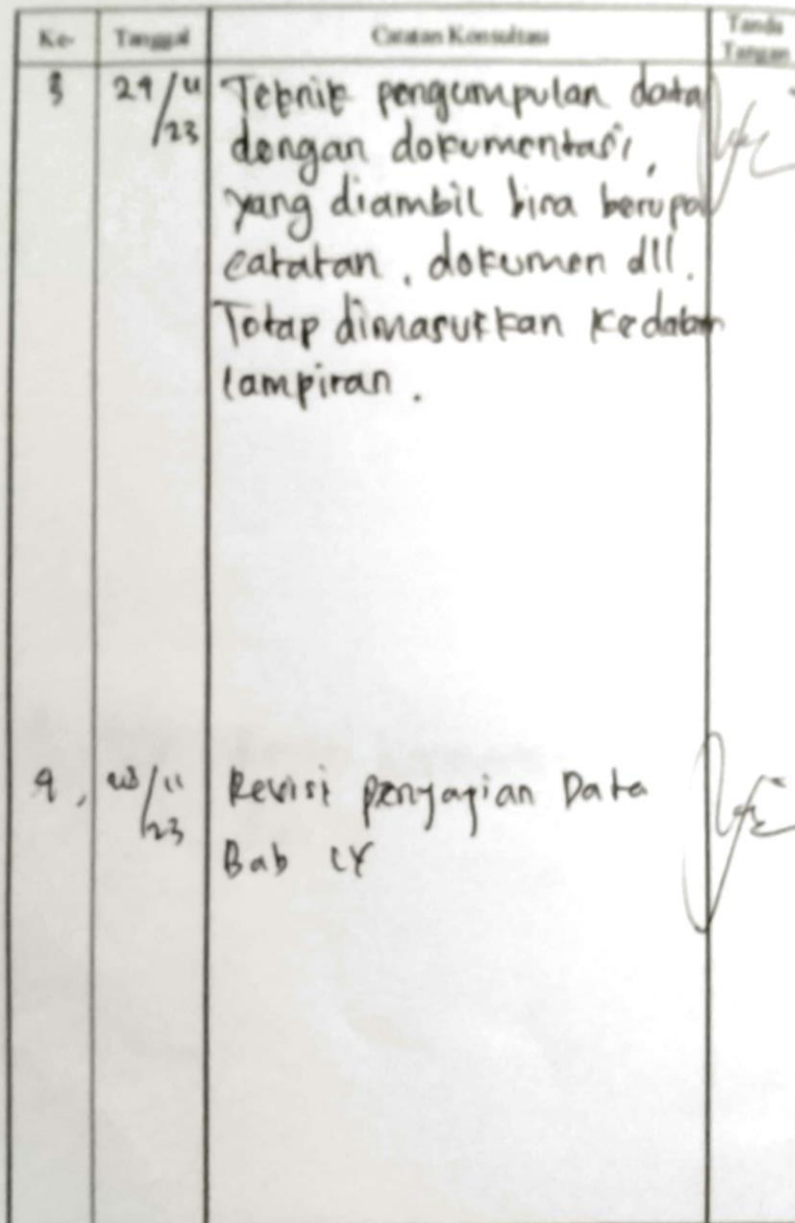 Ke- Tanggal Catatan Konsultasi Tanda
Tangan
3 Teknik pengumpulan data
/23 dengan dokumentasi,
yang diambil bisa berupa
catatan, dokumen dll.
Tetap dimasukkan kedalam
lampiran.
4, Revisi penyajian Data
/23 Bab IV